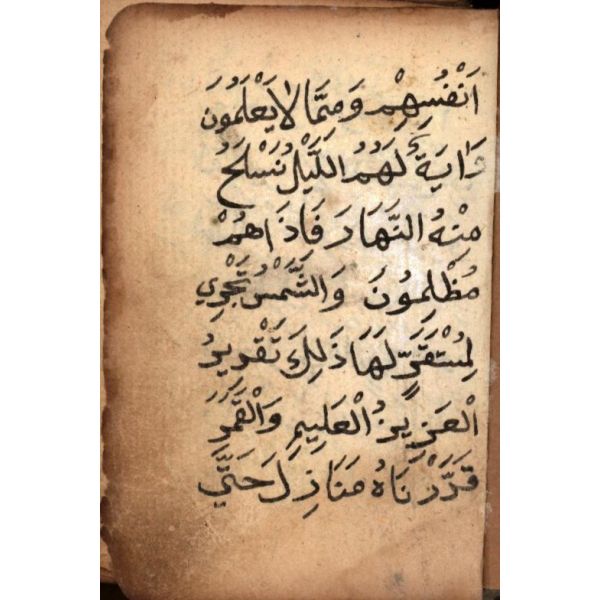 اَنْفُسِهِمْ وَمِمَّا لَا يَعْلَمُونَ
وَاٰيَةٌ لَهُمُ الَّيْلُ نَسْلَخُ
مِنْهُ النَّهَارَ فَاِذَاهُمْ
مُظْلِمُونَ وَالشَّمْسُ تَجْرِي
لِمُسْتَقَرٍّ لَهَا ذَلِكَ تَقْدِيرُ
الْعَزِيزِ الْعَلِيمِ وَالْقَمَرَ
قَدَّرْنَاهُ مَنَازِلَ حَتَّي